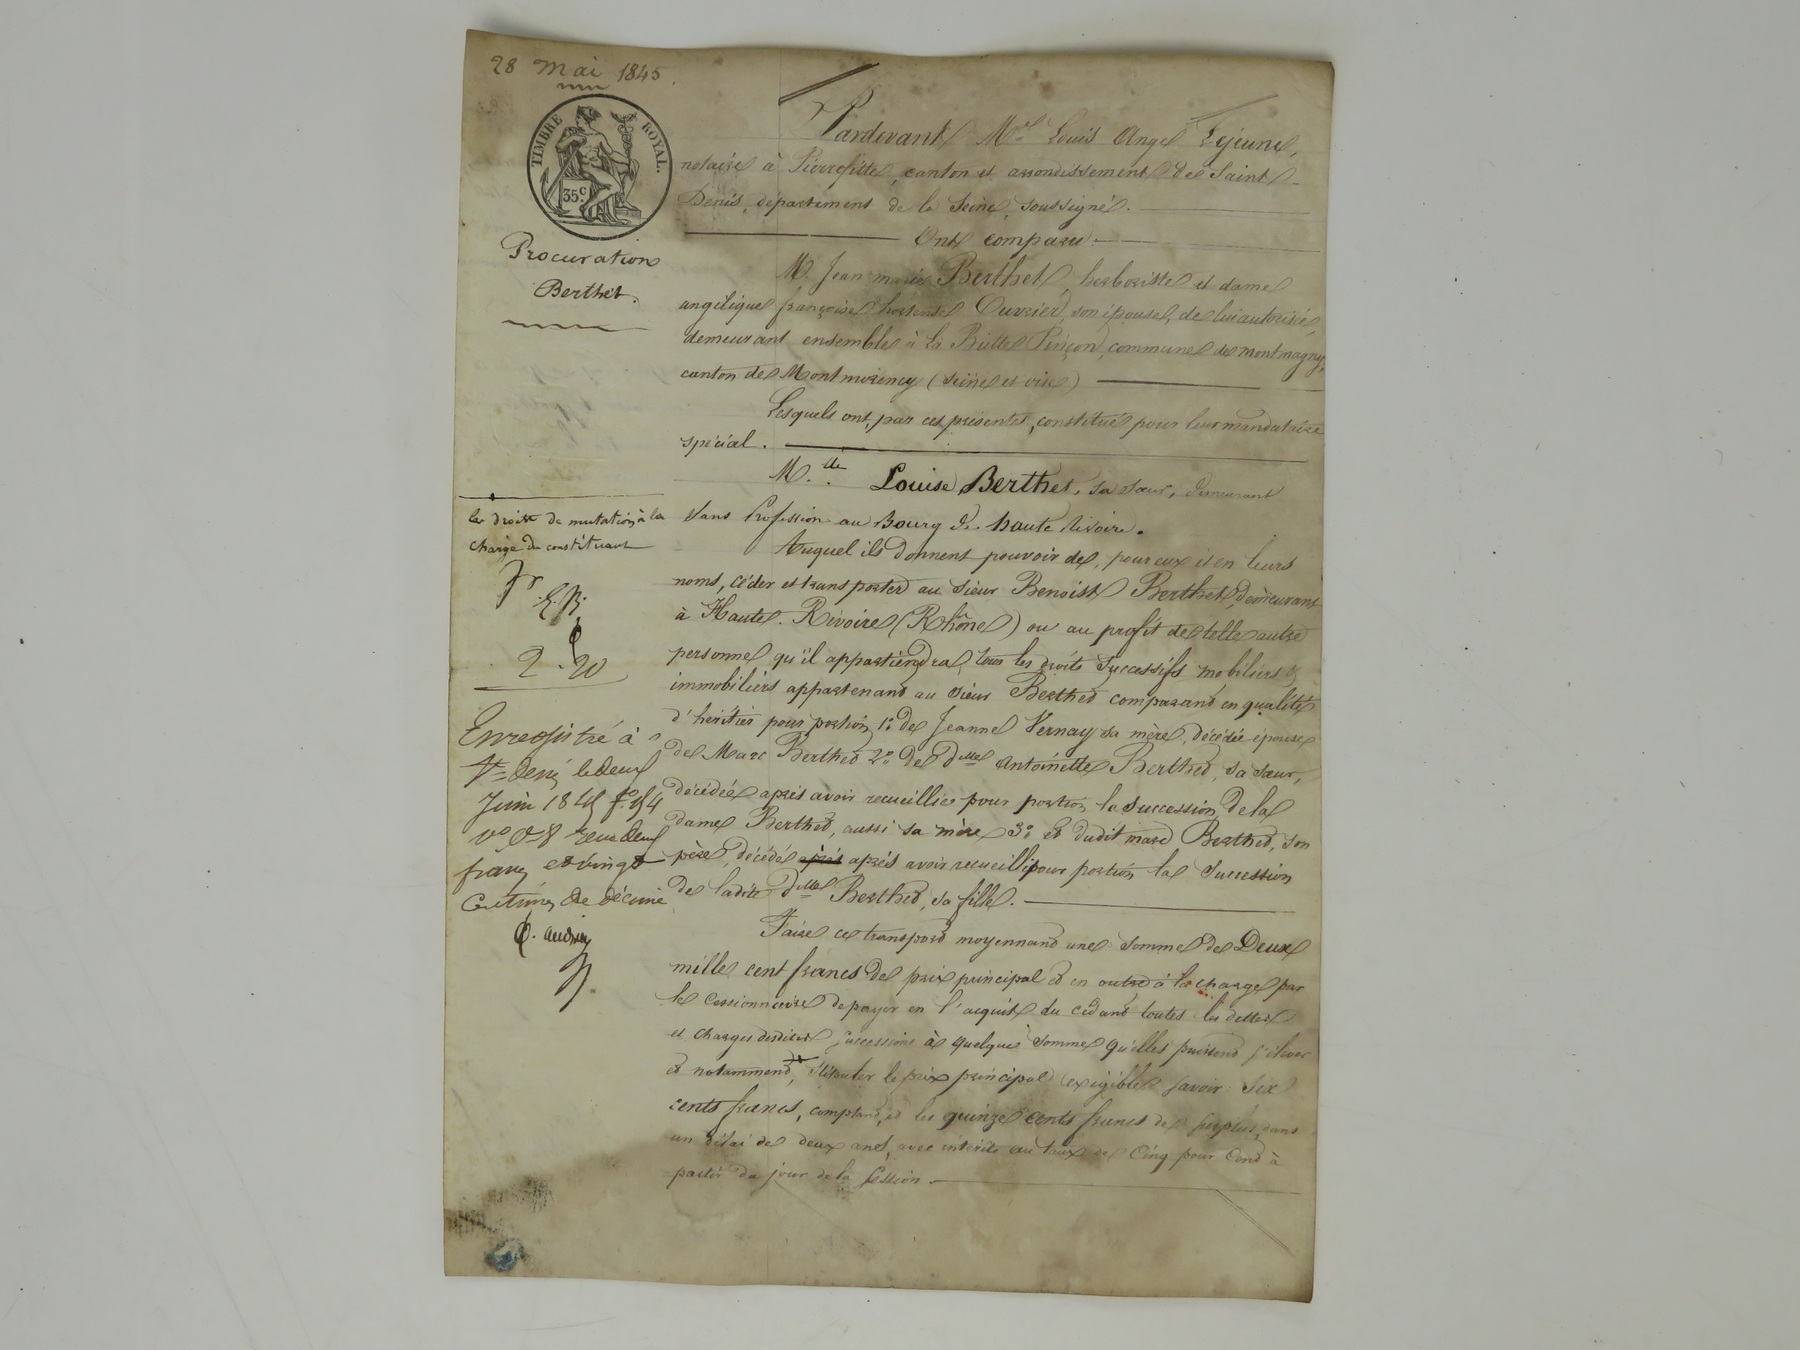 28 Mai 1845
TIMBRE ROYAL.
35c.
Procuration
Berthet.
Pardevant Me Louis Ange Lejeune,
notaire à Pierrefitte, canton et arrondissement de Saint
Denis, département de la Seine, soussigné.
Ont comparu
M. Jean marie Berthet, herboriste et dame
angélique françoise hortense Ouvrier, son épouse, de lui autorisée,
demeurant ensemble à la Butte Pinçon, commune de montmagny,
canton de Montmorency (Seine et oise)
Lesquels ont, par ces présentes, constitué pour leur mandataire
spécial.
M.lle Louise Berthet, sa sœur, demeurant
sans Profession au Bourg de haute Rivoire.
Auquel ils donnent pouvoir de, pour eux et en leurs
noms, céder et transporter au sieur Benoist Berthet, demeurant
à Haute Rivoire (Rhône) ou au profit de telle autre
personne qu'il appartiendra, tous les droits successifs mobiliers &
immobiliers appartenant au sieur Berthet comparant en qualité
d'héritier pour portion 1º de Jeanne Vernay sa mère, décédée épouse
de Marc Berthet 2º de dlle Antoinette Berthet, sa sœur,
décédée après avoir recueillie pour portion la succession de la
dame Berthet, aussi sa mère 3º et dudit marc Berthet, son
père, décédé après après avoir recueilli pour portion la succession
de ladite dlle Berthet, sa fille.
Faire ce transport moyennant une somme de Deux
mille cent francs de prix principal et en outre à la charge par
le cessionnaire de payer en l'acquit du cédant toutes les dettes
et charges desdites successions à quelque somme qu'elles puissent s'élever
et notamment, stipuler le prix principal exigible savoir: six
cents francs, comptant, et les quinze cents francs de surplus, dans
un délai de deux ans, avec intérêts au taux de Cinq pour Cent à
partir du jour de la cession.
les droits de mutation à la
charge du constituant
2 . 20
Enregistré à
St Denis le deux
Juin 1845 fo 54
vo C 8 reçu deux
francs et vingt
Centimes de décime